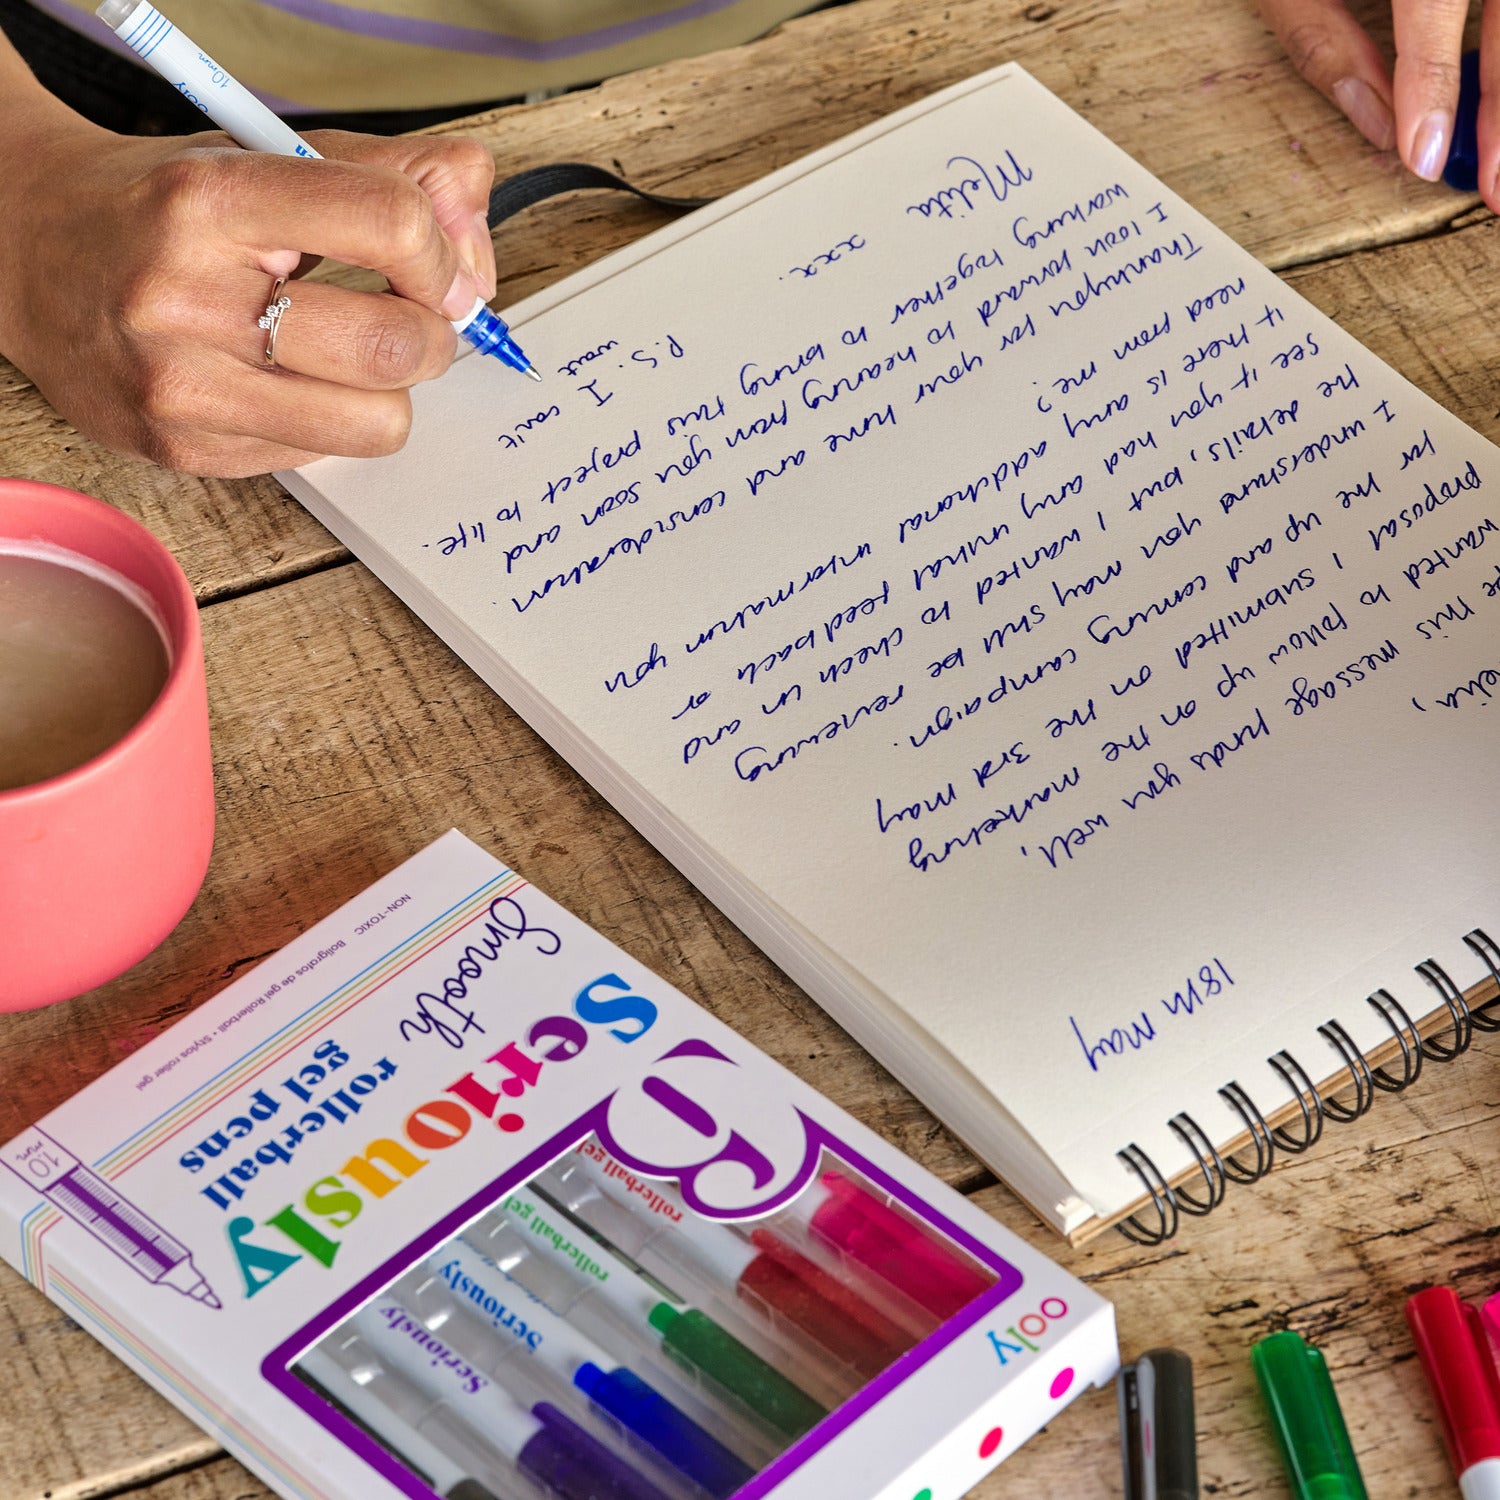 18th May
this message finds you well,
wanted to follow up on the marketing
proposal I submitted on the 3rd May
for the up and coming campaign.
I understand you may still be reviewing
the details, but I wanted to check in and
see if you had any initial feedback or
if there is any additional information you
need from me?
Thankyou for your time and consideration.
I look forward to hearing from you soon and
working together to bring this project to life.
Melita
xxx.
P.S. I can't
wait
ooly
1.0mm
ooly
6
Seriously
Smooth
rollerball
gel pens
1.0
mm
NON-TOXIC
Bolígrafos de gel Rollerball • Stylos roller gel
rollerball gel
rollerball gel
Seriously
Seriously